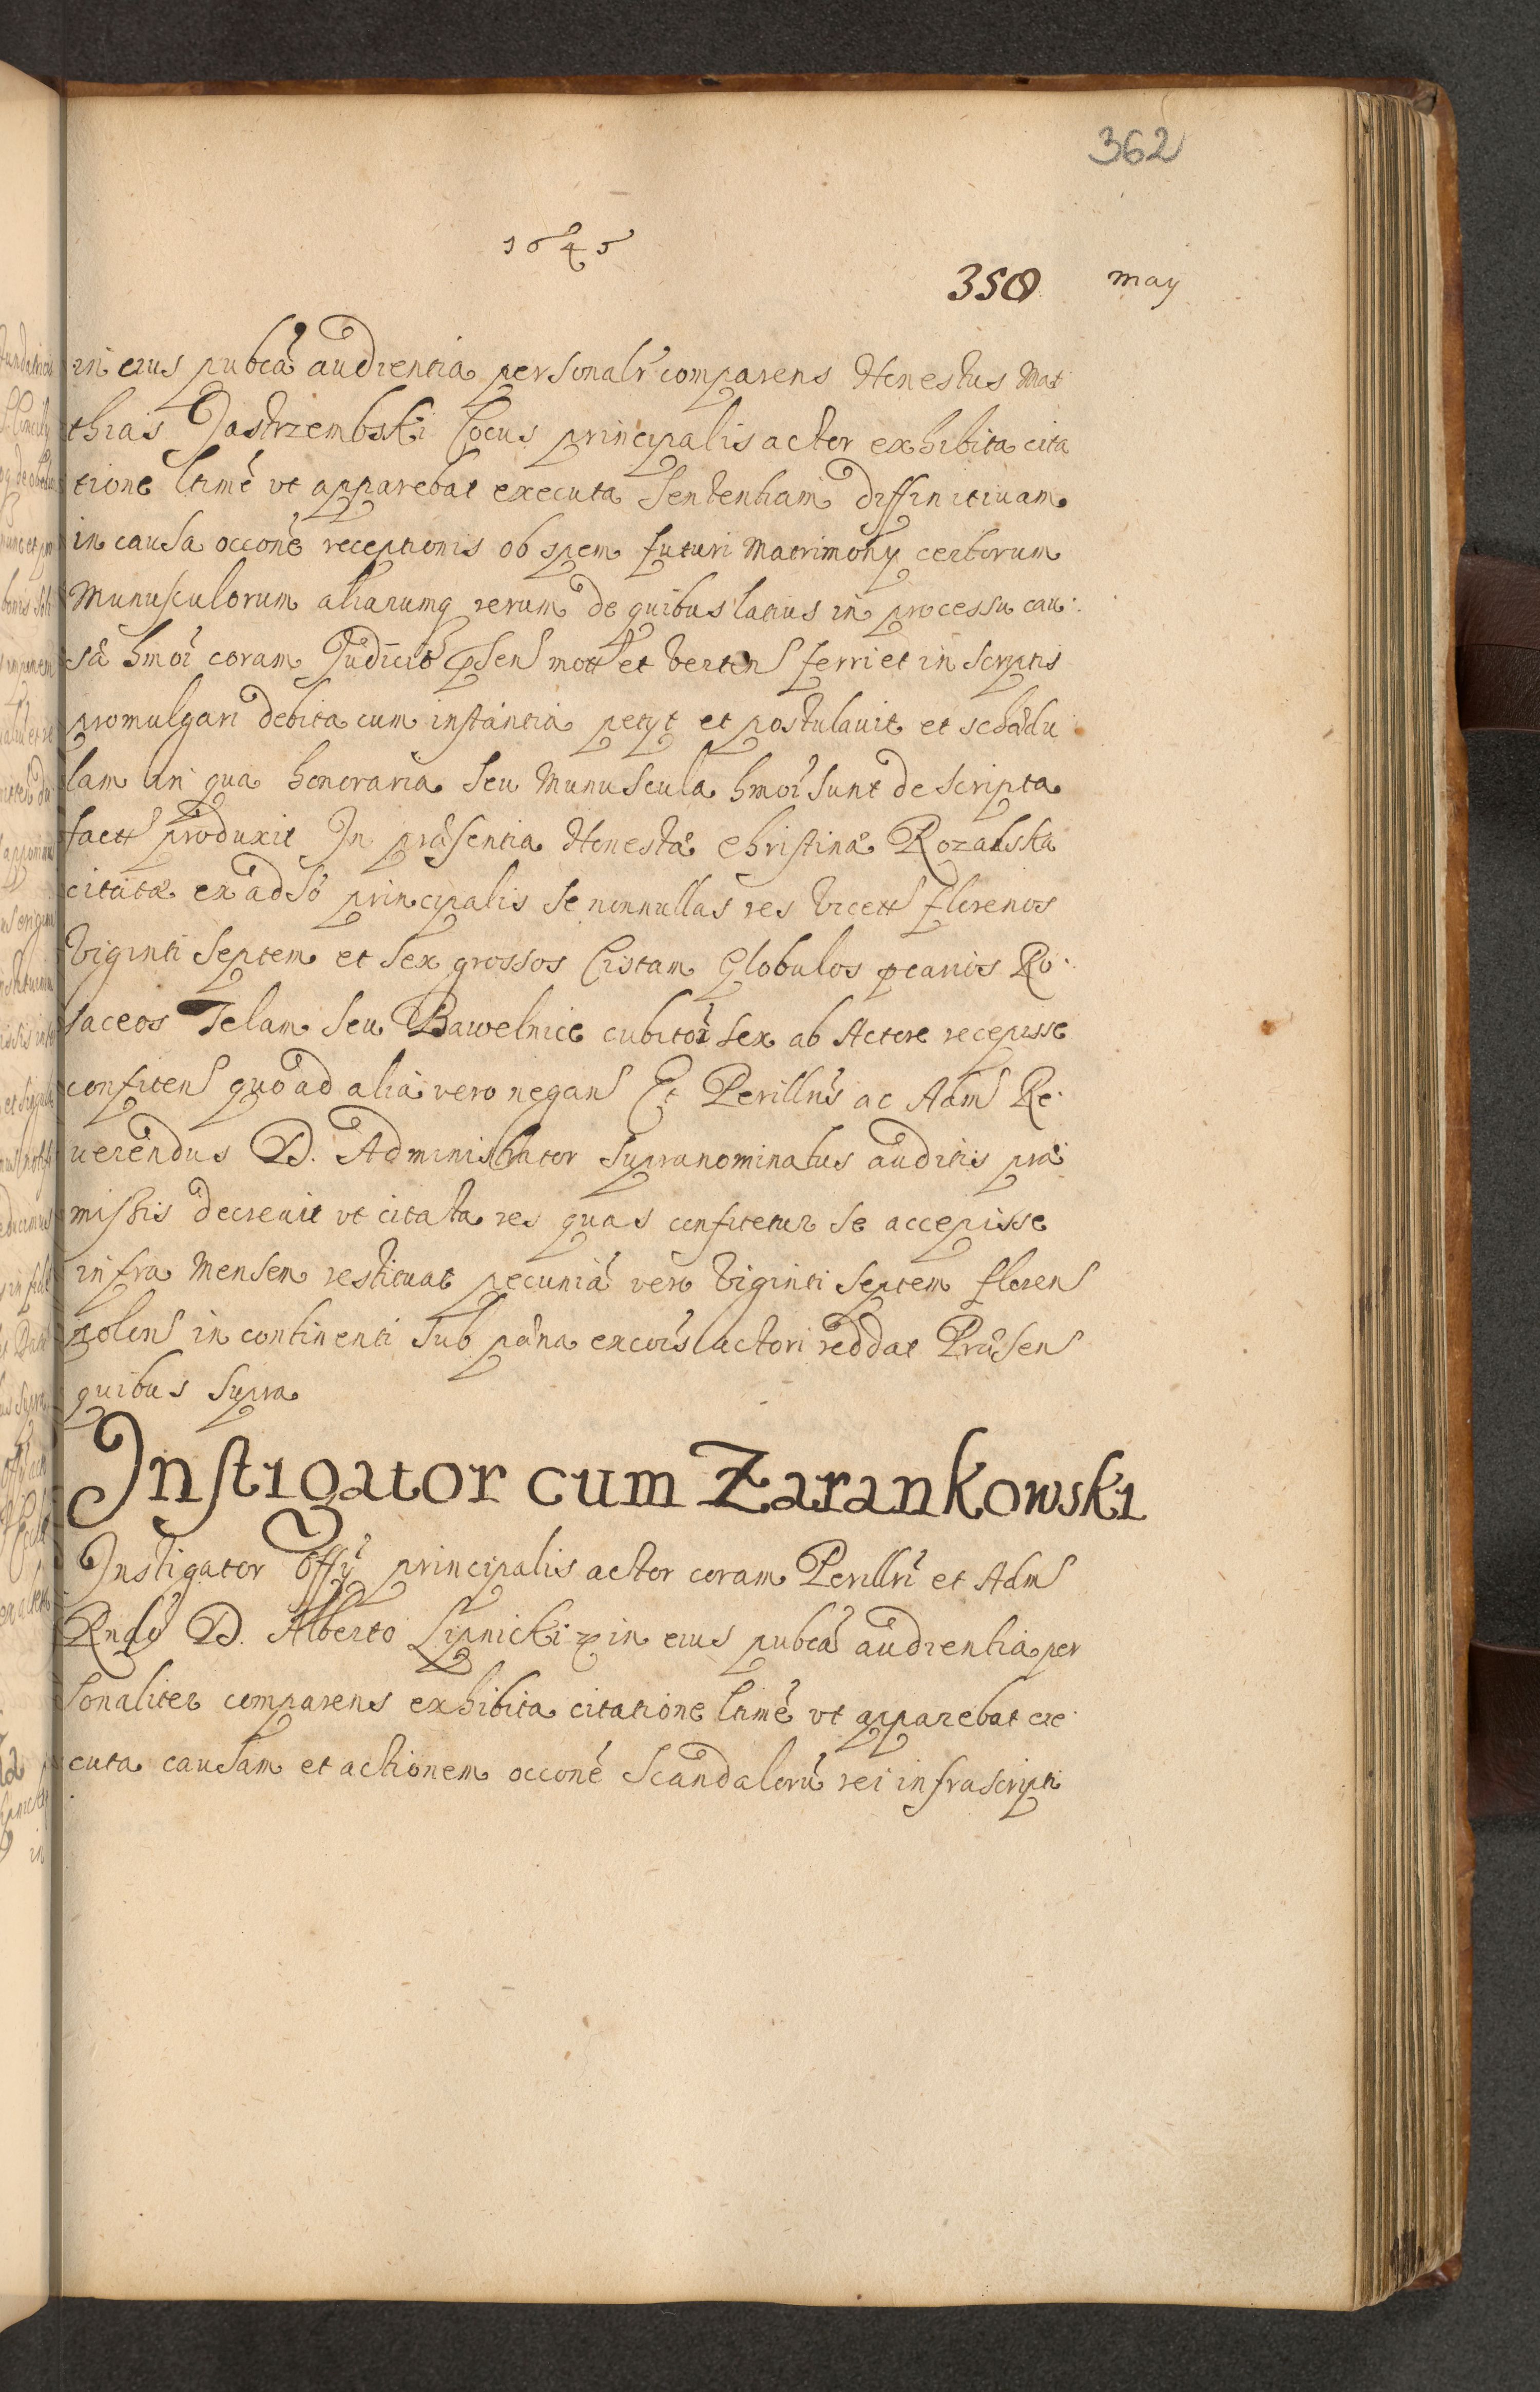 362
1645
350 may
in eius pubca audientia personalr comparens Honestus Mat
thias Jastrzembski Cocus principalis actor exhibita cita
tione ltime vt apparebat executa Sententiam diffinitiuam
in causa occone receptionis ob spem futuri Matrimony certorum
Munusculorum aliarumq rerum de quibus latius in processu cau
sæ hmoi coram Judicio psen mott et verten ferri et in scriptis
promulgari debita cum instantia petyt et postulauit et schædu
lam in qua honoraria seu Munuscula hmoi sunt descripta
produxit In præsentia Honestæ Christinæ Rozalska
citatæ ex adso principalis se nonnullas res florenos
Viginti Septem et sex grossos Cistam Globulos Ro
saceos Telam seu Bawelnice cubitor sex ab Actore recepisse
confiten quo ad alia vero negans Et Perillris ac Adm Re
uerendus D. Administrator supranominatus auditis præ
missis decreuit vt citata res quas confitetur se accepisse
infra Mensem restituat pecuniã vero Viginti Septem floren
polon in continenti sub pæna excois actori reddat Præsen
quibus supra
Instigator cum Zarankowski
Instigator Offy principalis actor coram Perillri et Adm
Rndo D. Alberto Lipnicki in eius pubca audientia per
sonaliter comparens exhibita citatione ltime vt apparebat exe
cuta causam et actionem occone Scandalorũ rei infrascripti